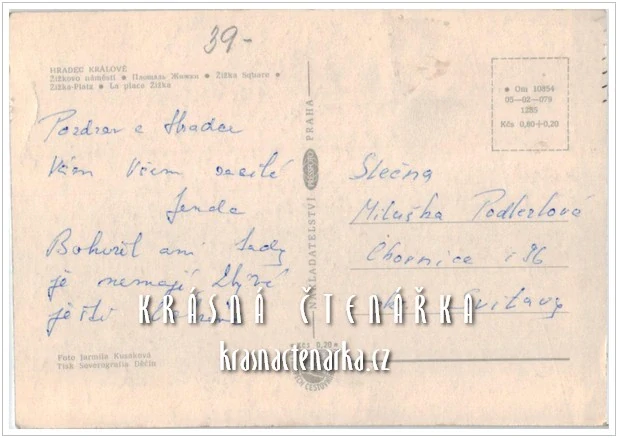 39-
HRADEC KRÁLOVÉ
Žižkovo náměstí ● Площадь Жижки ● Žižka Square ●
Žižka-Platz ● La place Žižka
Pozdrav z Hradce
Vám Všem zasílá
Jenda
Bohužel ani tady
je nemají. Zbývá
ještě
Foto Jarmila Kusáková
Tisk Severografia Děčín
NAKLADATELSTVÍ PRAHA
Kčs 0,20
● Om 10854
05-02-079
1285
Kčs 0,60+0,20
Slečna
Miluška Podlezlová
Chornice 186
Svitavy
KRÁSNÁ ČTENÁŘKA
krasnactenarka.cz